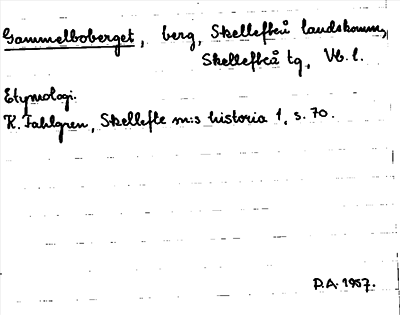 Gammelboberget, berg, Skellefteå landskomm,
Skellefteå tg, Vb. l.
Etymologi.
K. Fahlgren, Skellefte m:s historia 1, s. 70.
P.A. 1957.